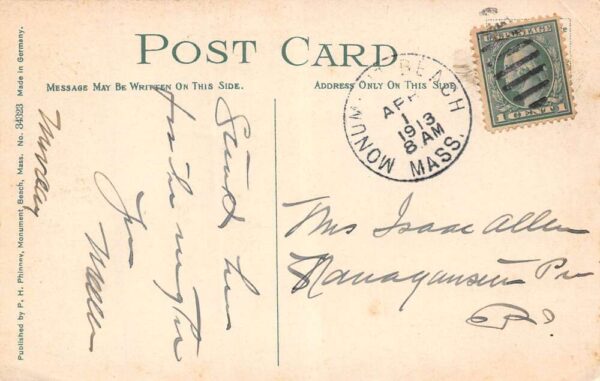 POST CARD
MESSAGE MAY BE WRITTEN ON THIS SIDE.
ADDRESS ONLY ON THIS SIDE.
Published by P. H. Phinney, Monument Beach, Mass. No. 34323 Made in Germany.
MONUM BEACH
APR
1
1913
8 AM
MASS.
U.S. POSTAGE
1 CENT 1
Monday
here
for the night
Mrs Isaac Allen
Narragansett Pier
R.I.